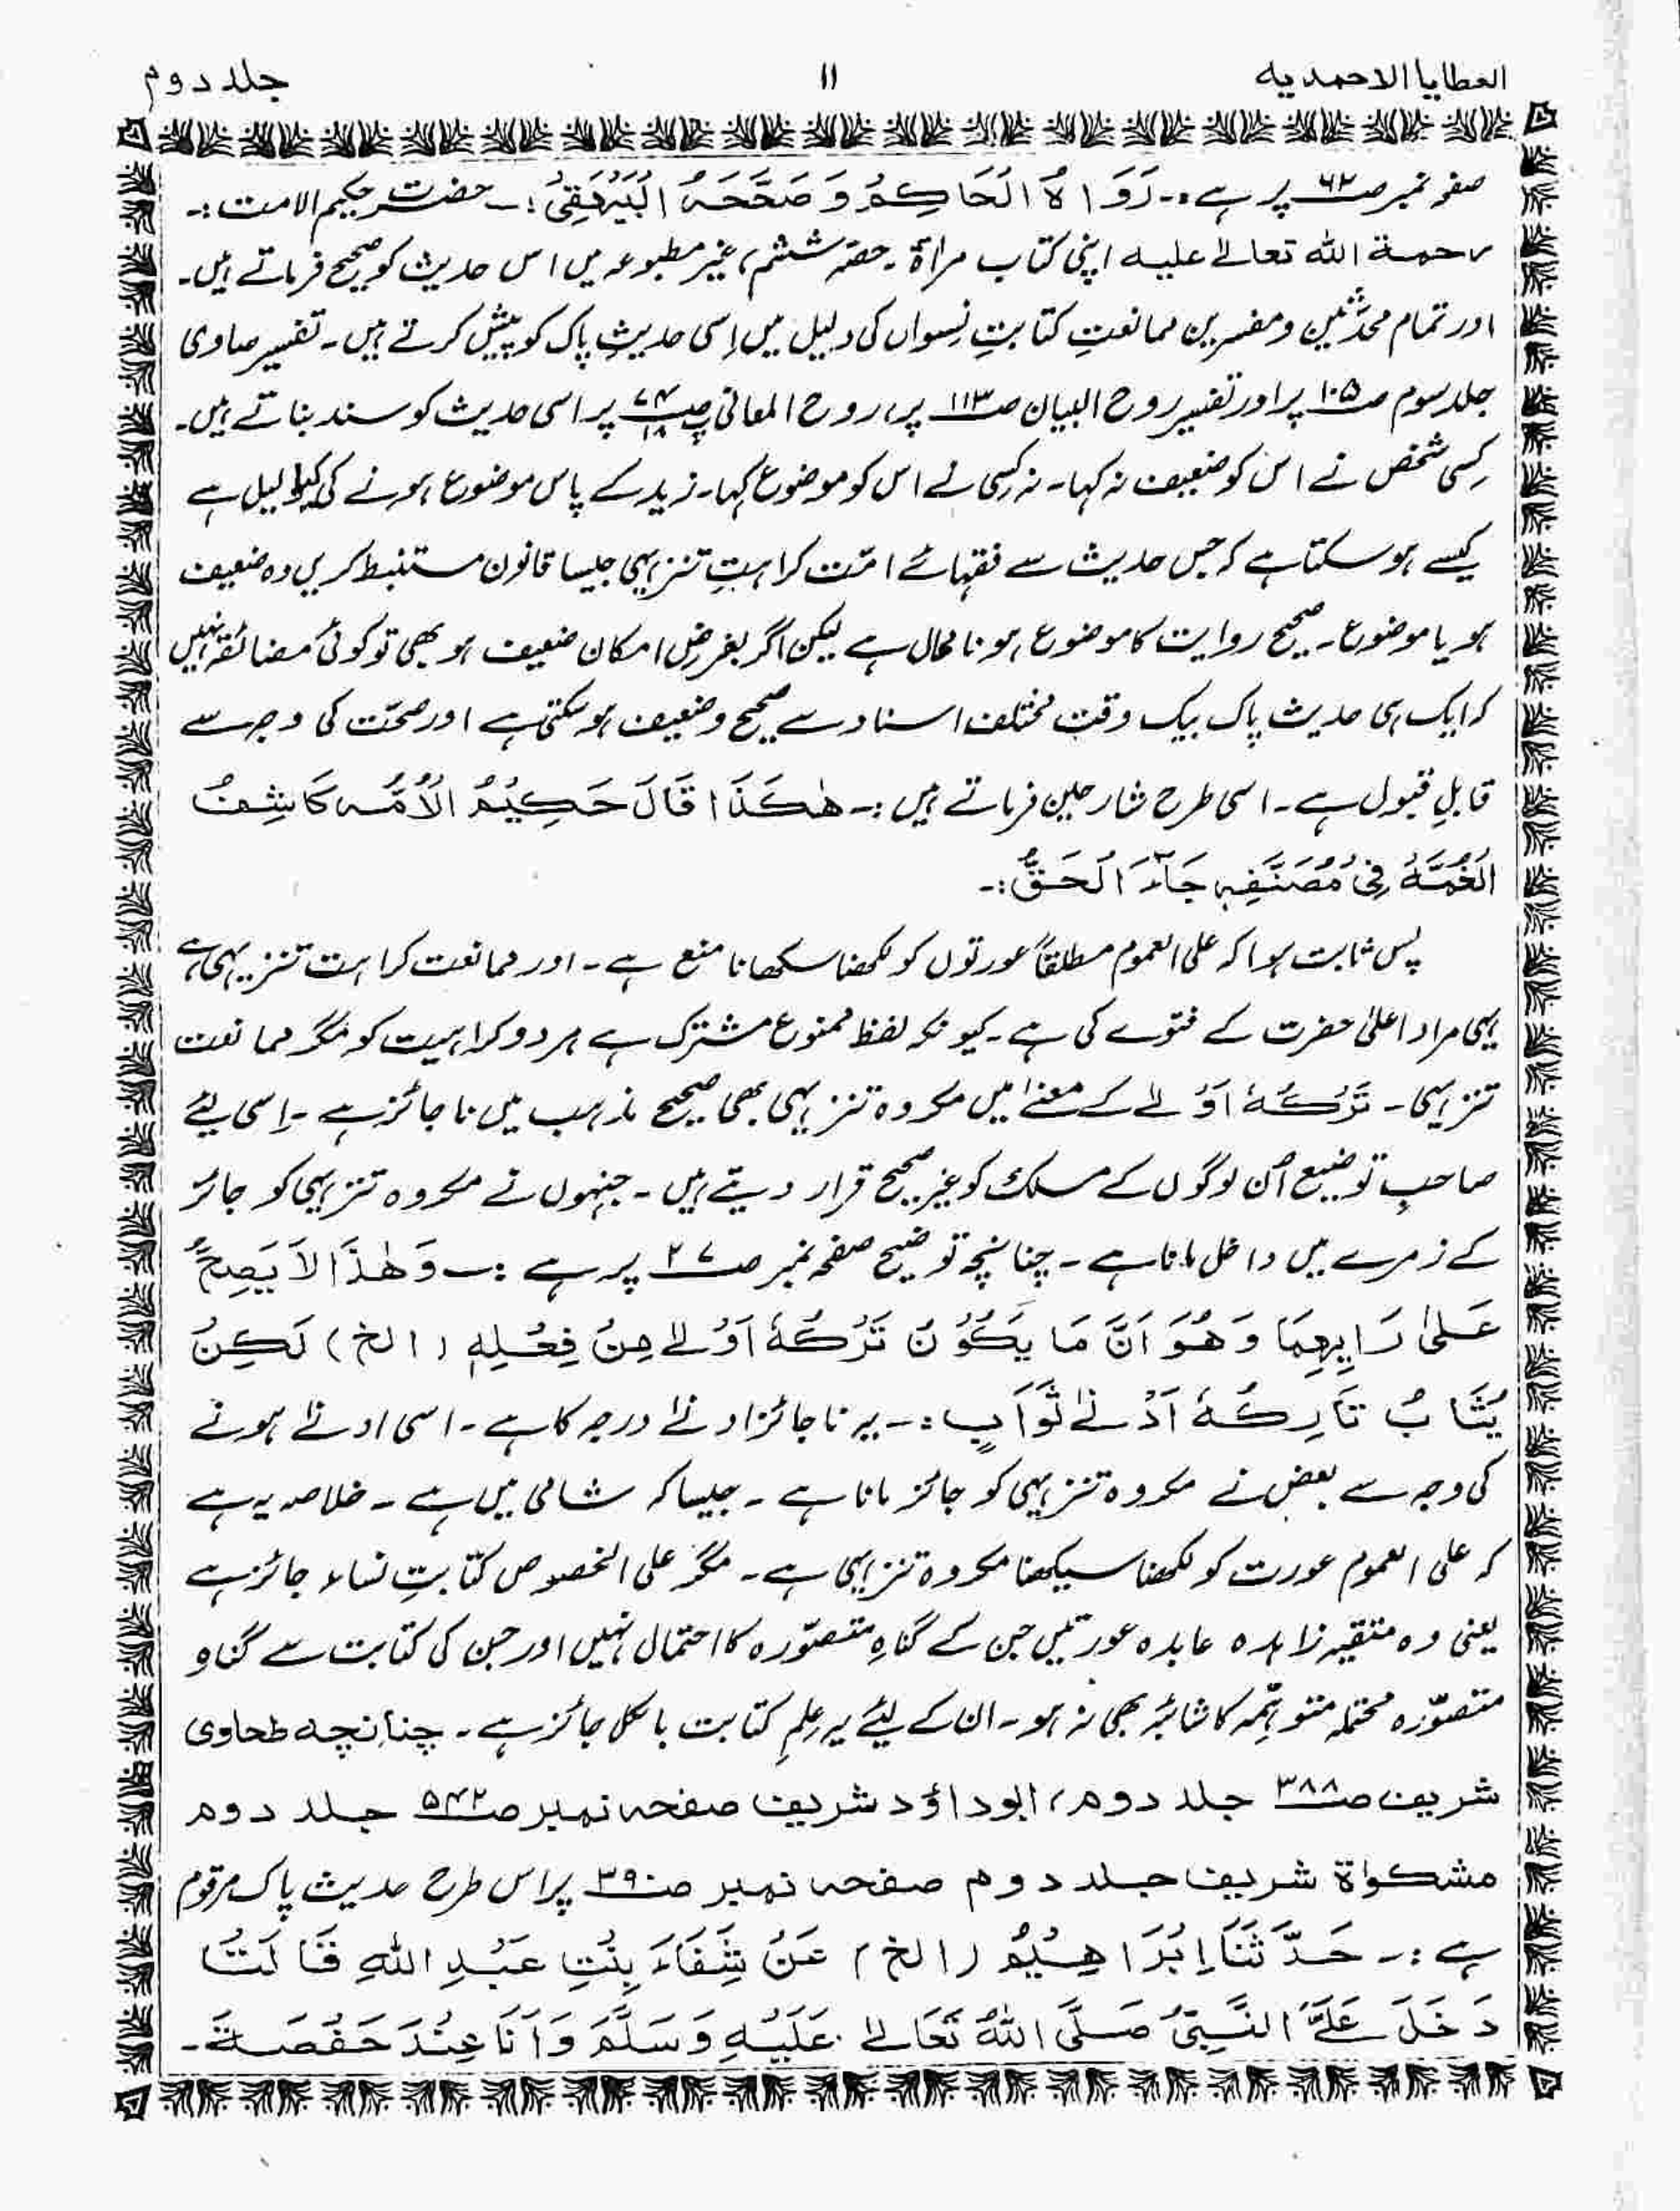 العطایا الاحمدیه ۱۱ جلد دوم
صفہ نمبر صـ۶۳ پر ہے :۔ رَوَاہُ الْحَاکِمُ وَ صَحَّحَہُ الْبَیْہَقِیُ :۔ حضرت حکیم الامت :۔
رحمة الله تعالےٰ علیہ اپنی کتاب مراۃ ۔ حصّہ ششم، غیر مطبوعہ میں اس حدیث کو صحیح فرماتے ہیں۔
اور تمام محدّثین و مفسرین ممانعتِ کتابتِ نِسواں کی دلیل میں اِسی حدیثِ پاک کو پیش کرتے ہیں۔ تفسیر صاوی
جلد سوم صـ۱۰۵ پر اور تفسیر روح البیان صـ۱۱۳ پر، روح المعانی صـ۷۴ پ۱۸ پر اسی حدیث کو سند بناتے ہیں۔
کِسی شخص نے اس کو ضعیف نہ کہا۔ نہ کِسی نے اس کو موضوع کہا۔ زید کے پاس موضوع ہونے کی کیا دلیل ہے
کیسے ہو سکتا ہے کہ جس حدیث سے فقہائے امّت کراہتِ تنزیہی جیسا قانون مستنبط کریں وہ ضعیف
ہو یا موضوع۔ صحیح روایت کا موضوع ہونا محال ہے لیکن اگر بفرضِ امکان ضعیف ہو بھی تو کوئی مضائقہ نہیں
کہ ایک ہی حدیث پاک بیک وقت مختلف اسناد سے صحیح و ضعیف ہو سکتی ہے اور صحّت کی وجہ سے
قابلِ قبول ہے۔ اسی طرح شارحین فرماتے ہیں :۔ ھٰکَذَا قَالَ حَکِیْمُ الْاُمَّہ کَاشِفُ
الْغُمَّۃُ فِیْ مُصَنَّفِہٖ جَآءَ الْحَقُّ :۔
پس ثابت ہوا کہ علی العموم مطلقاً عورتوں کو لکھنا سکھانا منع ہے۔ اور ممانعت کراہت تنزیہی ہے
یہی مراد اعلیٰ حضرت کے فتوے کی ہے۔ کیونکہ لفظ ممنوع مشترک ہے ہر دو کراہیت کو مگر ممانعت
تنزیہی۔ تَرْکُہٗ اَوْلےٰ کے معنےٰ میں مکروہ تنزیہی بھی صحیح مذہب میں ناجائز ہے۔ اِسی لئے
صاحبِ توضیح اُن لوگوں کے مسلک کو غیر صحیح قرار دیتے ہیں۔ جنہوں نے مکروہ تنزیہی کو جائز
کے زمرے میں داخل مانا ہے۔ چنانچہ توضیح صفحہ نمبر صـ۲۷ پر ہے :۔ وَھٰذَا لَا یَصِحُّ
عَلیٰ رَایِہِمَا وَ ھُوَ اَنَّ مَا یَکُوْنُ تَرْکُہٗ اَوْلےٰ مِنْ فِعْلِہٖ (الخ) لٰکِنْ
یُثَابُ تَارِکُہٗ اَدْنےٰ ثَوَابٍ :۔ یہ ناجائز ادنےٰ درجہ کا ہے۔ اسی ادنےٰ ہونے
کی وجہ سے بعض نے مکروہ تنزیہی کو جائز مانا ہے۔ جیسا کہ شامی میں ہے۔ خلاصہ یہ ہے
کہ علی العموم عورت کو لکھنا سیکھنا مکروہ تنزیہی ہے۔ مگر علی الخصوص کتابتِ نساء جائز ہے
یعنی وہ متقیہ زاہدہ عابدہ عورتیں جن کے گناہِ متصوّرہ کا احتمال نہیں اور جن کی کتابت سے گناہِ
متصوّرہ محتملہ متوہّمہ کا شائبہ بھی نہ ہو۔ ان کے لئے یہ عِلمِ کتابت بالکل جائز ہے۔ چنانچہ طحاوی
شریف صـ۳۸۸ جلد دوم، ابوداؤد شریف صفحہ نمبر صـ۵۴۲ جلد دوم
مشکواۃ شریف جلد دوم صفحہ نمبر صـ۳۹۰ پر اس طرح حدیث پاک مرقوم
ہے :۔ حَدَّثَنَا اِبْرَاھِیْمُ (الخ) عَنْ شِفَاءَ بِنْتِ عَبْدِ اللهِ قَالَتْ
دَخَلَ عَلَیَّ النَّبِیُّ صَلَّی اللهُ تَعَالےٰ عَلَیْہِ وَسَلَّمَ وَاَنَا عِنْدَ حَفْصَۃَ۔